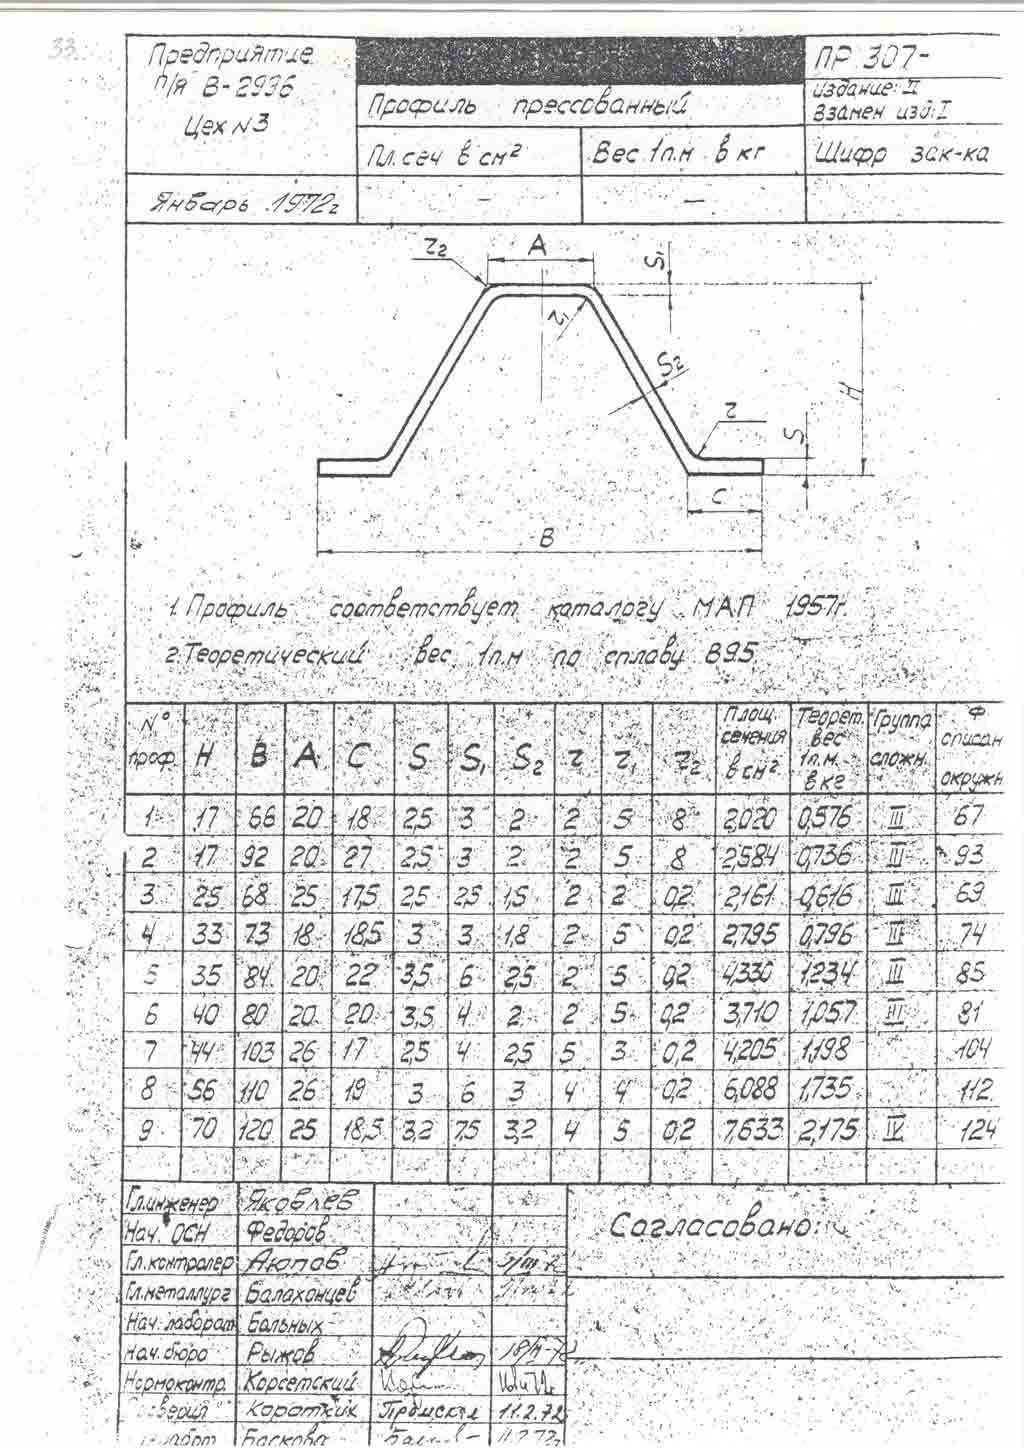 33
Предприятие
п/я В-2996
Цех N3
Январь 1972г
Профиль прессованный
Пл.сеч в см²
Вес 1п.м в кг
–
–
ПР 307-
издание: II
Взамен изд: I
Шифр зак-ка
r₂
A
S₁
r₁
S₂
H
r
S
C
B
1. Профиль соответствует каталогу МАП 1957г.
2. Теоретический вес 1п.м по сплаву В95
N° проф. H B A C S S₁ S₂ r r₁ r₂ Площ. сечения в см² Теорет. вес 1п.м. в кг Группа сложн. Ф описан окружн
1 17 66 20 18 2,5 3 2 2 5 8 2,020 0,576 III 67
2 17 92 20 27 2,5 3 2 2 5 8 2,584 0,736 III 93
3 25 68 25 17,5 2,5 2,5 1,5 2 2 0,2 2,161 0,616 III 69
4 33 73 18 18,5 3 3 1,8 2 5 0,2 2,795 0,796 III 74
5 35 84 20 22 3,5 6 2,5 2 5 0,2 4,330 1,234 III 85
6 40 80 20 20 3,5 4 2 2 5 0,2 3,710 1,057 III 81
7 44 103 26 17 2,5 4 2,5 5 3 0,2 4,205 1,198 104
8 56 110 26 19 3 6 3 4 4 0,2 6,088 1,735 112
9 70 120 25 18,5 3,2 7,5 3,2 4 5 0,2 7,633 2,175 IV 124
Гл.инженер Яковлев
Нач. ОСН Федоров
Гл.контролер Аюпов
Гл.металлург Балахонцев
Нач. лаборат Больных
Нач. бюро Рыжов
Нормоконтр. Корсетский
Коротких 11.2.72
Баскова
Согласовано: